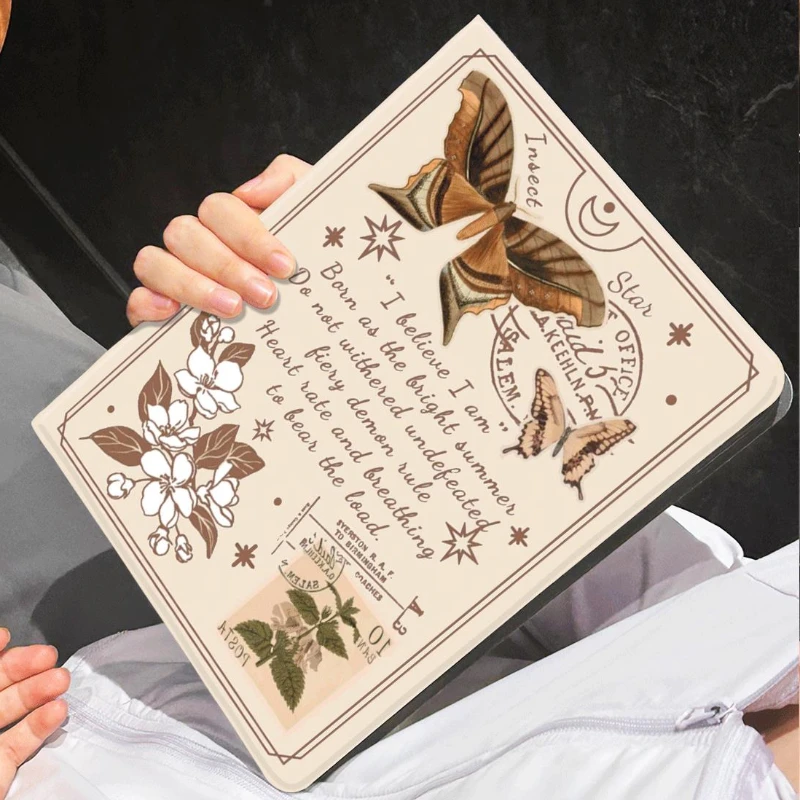 Insect
Star
E OFFICE
aid 5
A.KEEHLN.P.N
SALEM.
“ I believe I am ”
Born as the bright summer
Do not withered undefeated
fiery demon rule
Heart rate and breathing
to bear the load.
SYERSTON R. A. F.
TO BIRMINGHAM
COACHES
A3
SALEM
10
POSTA